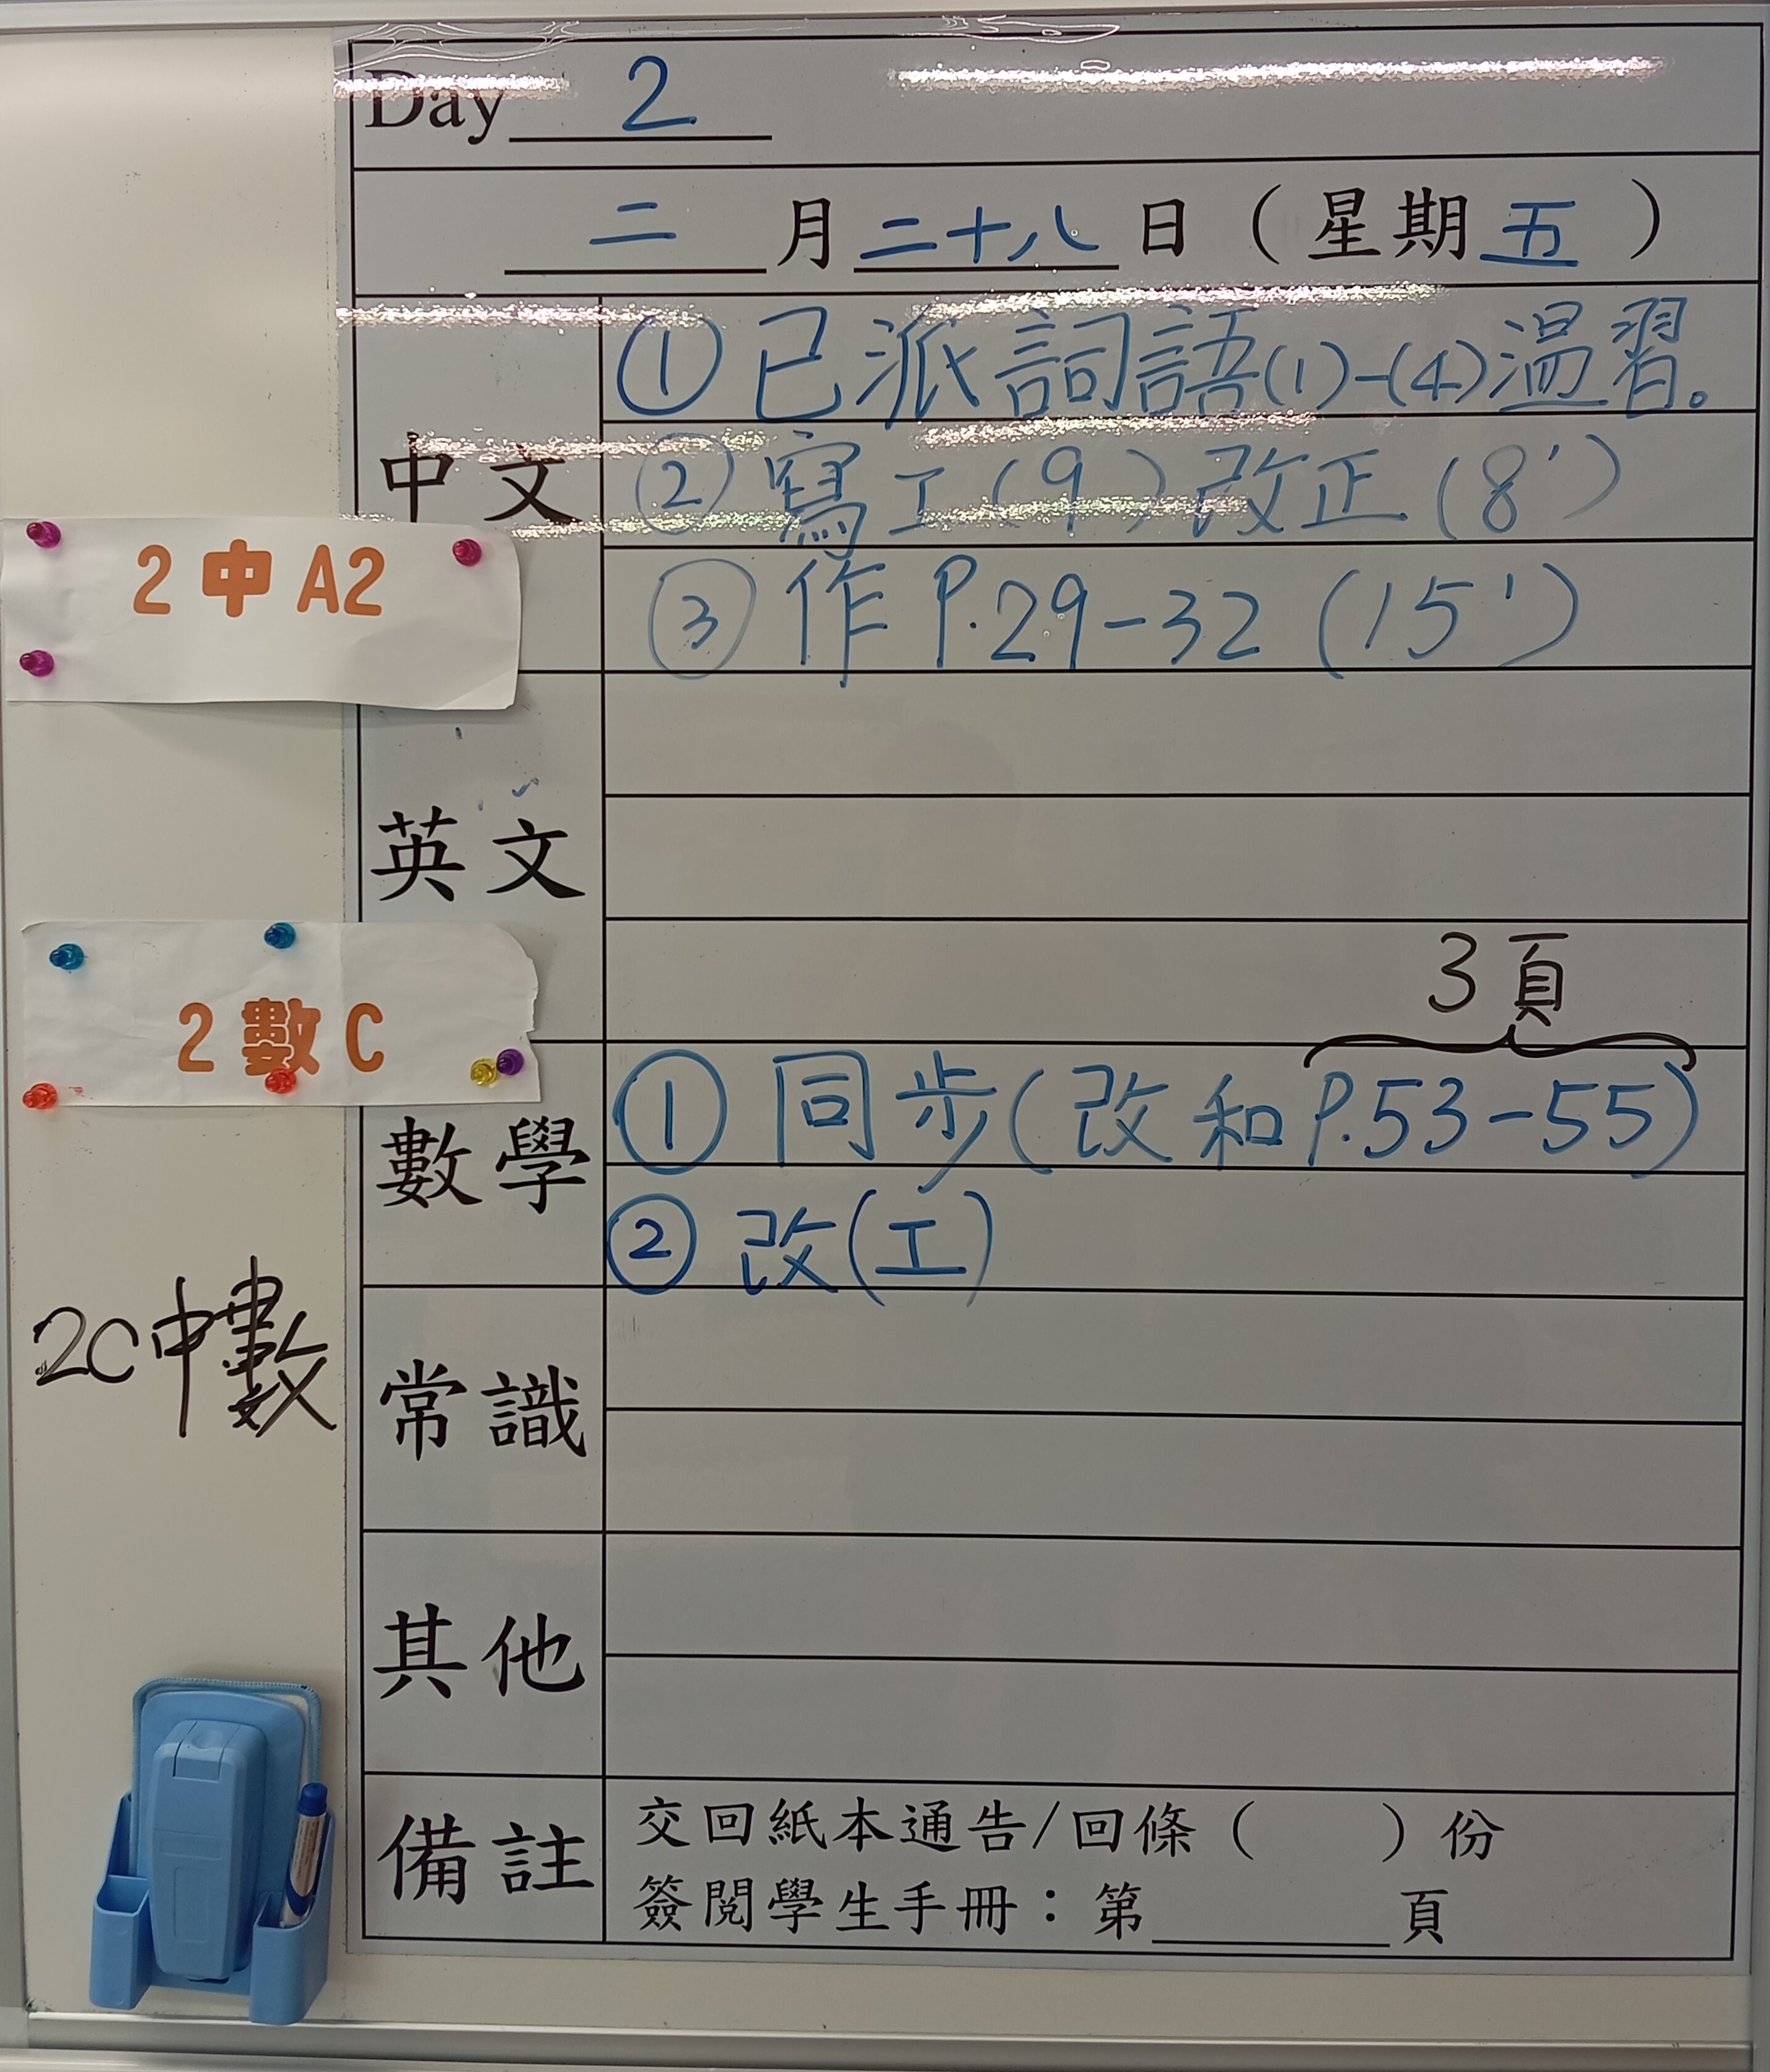 Day 2
二月二十八日（星期五）
中文
①已派詞語(1)-(4)溫習。
②寫工(9)改正(8')
③作P.29-32(15')
2中A2
英文
2數C
3頁
數學
①同步(改和P.53-55)
②改(工)
2C中數
常識
其他
備註
交回紙本通告/回條（　）份
簽閱學生手冊：第____頁